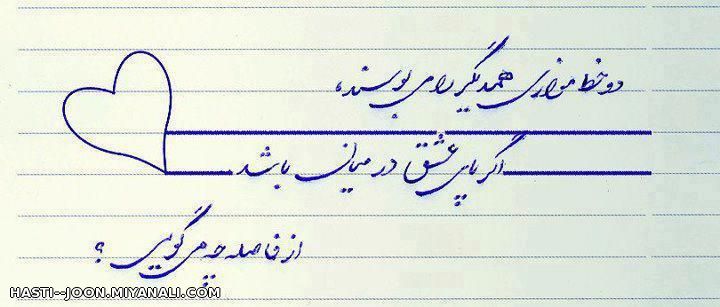 دو خط موازی همدیگر را می بوسند،
اگر پای عشق در میان باشد
از فاصله چه می گویی ؟
HASTI--JOON.MIYANALI.COM